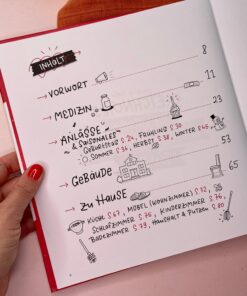 INHALT
→ VORWORT 8
→ MEDIZIN 11
→ ANLÄSSE & SAISONALES 23
GEBURTSTAG S. 24, FRÜHLING S. 30
SOMMER S. 34, HERBST S. 38, WINTER S. 45
→ GEBÄUDE 53
→ ZU HAUSE 65
KÜCHE S. 67, MÖBEL (WOHNZIMMER) S. 72,
SCHLAFZIMMER S. 75, KINDERZIMMER S. 76,
BADEZIMMER S. 79, HAUSHALT & PUTZEN S. 80